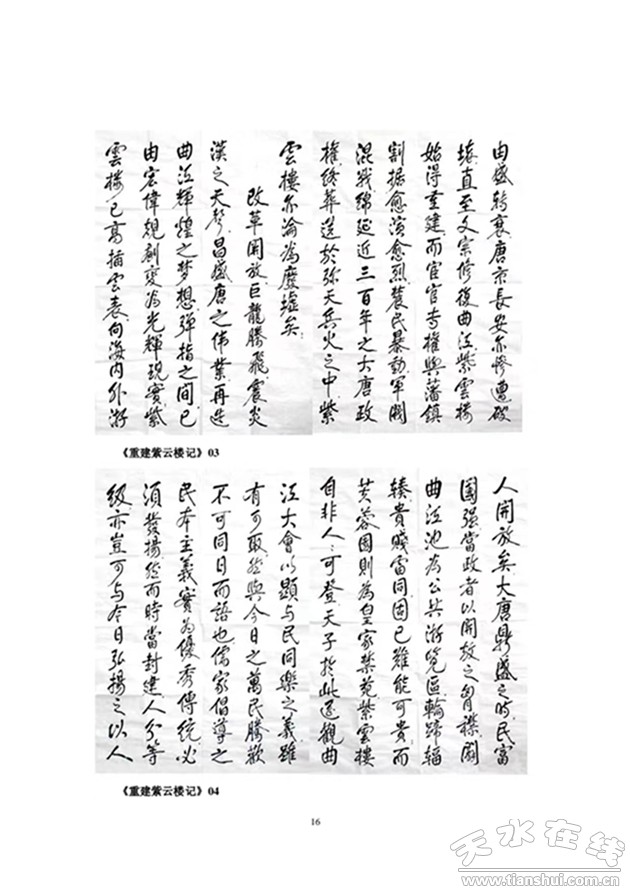 由盛轉衰唐京長安亦慘遭破
壞直至文宗修復曲江紫雲樓
始得重建而宦官專權與藩鎮
割据愈演愈烈農民暴動軍閥
混戰綿延近三百年之大唐政
權終葬送於弥天兵火之中紫
雲樓亦淪為廢墟矣
改革開放巨龍騰飛震炎
漢之天聲昌盛唐之偉業再造
曲江輝煌之梦想弹指之間已
由宏偉規劃变為光輝現實紫
雲樓已高插雲表向海内外游
《重建紫云楼记》03
人開放矣大唐鼎盛之时民富
國强當政者以開放之胸襟闢
曲江池為公共游览區輪蹄輻
辏貴賤雷同固已難能可貴而
芙蓉園則為皇家禁苑紫雲樓
自非人人可登天子於此遥觀曲
江大會以顯与民同樂之義雖
有可取然與今日之萬民騰歡
不可同日而語也儒家倡導之
民本主義實為優秀傳统必
須發揚然而時當封建人分等
级亦豈可与今日弘揚之以人
《重建紫云楼记》04
16
天水在线
www.tianshui.com.cn